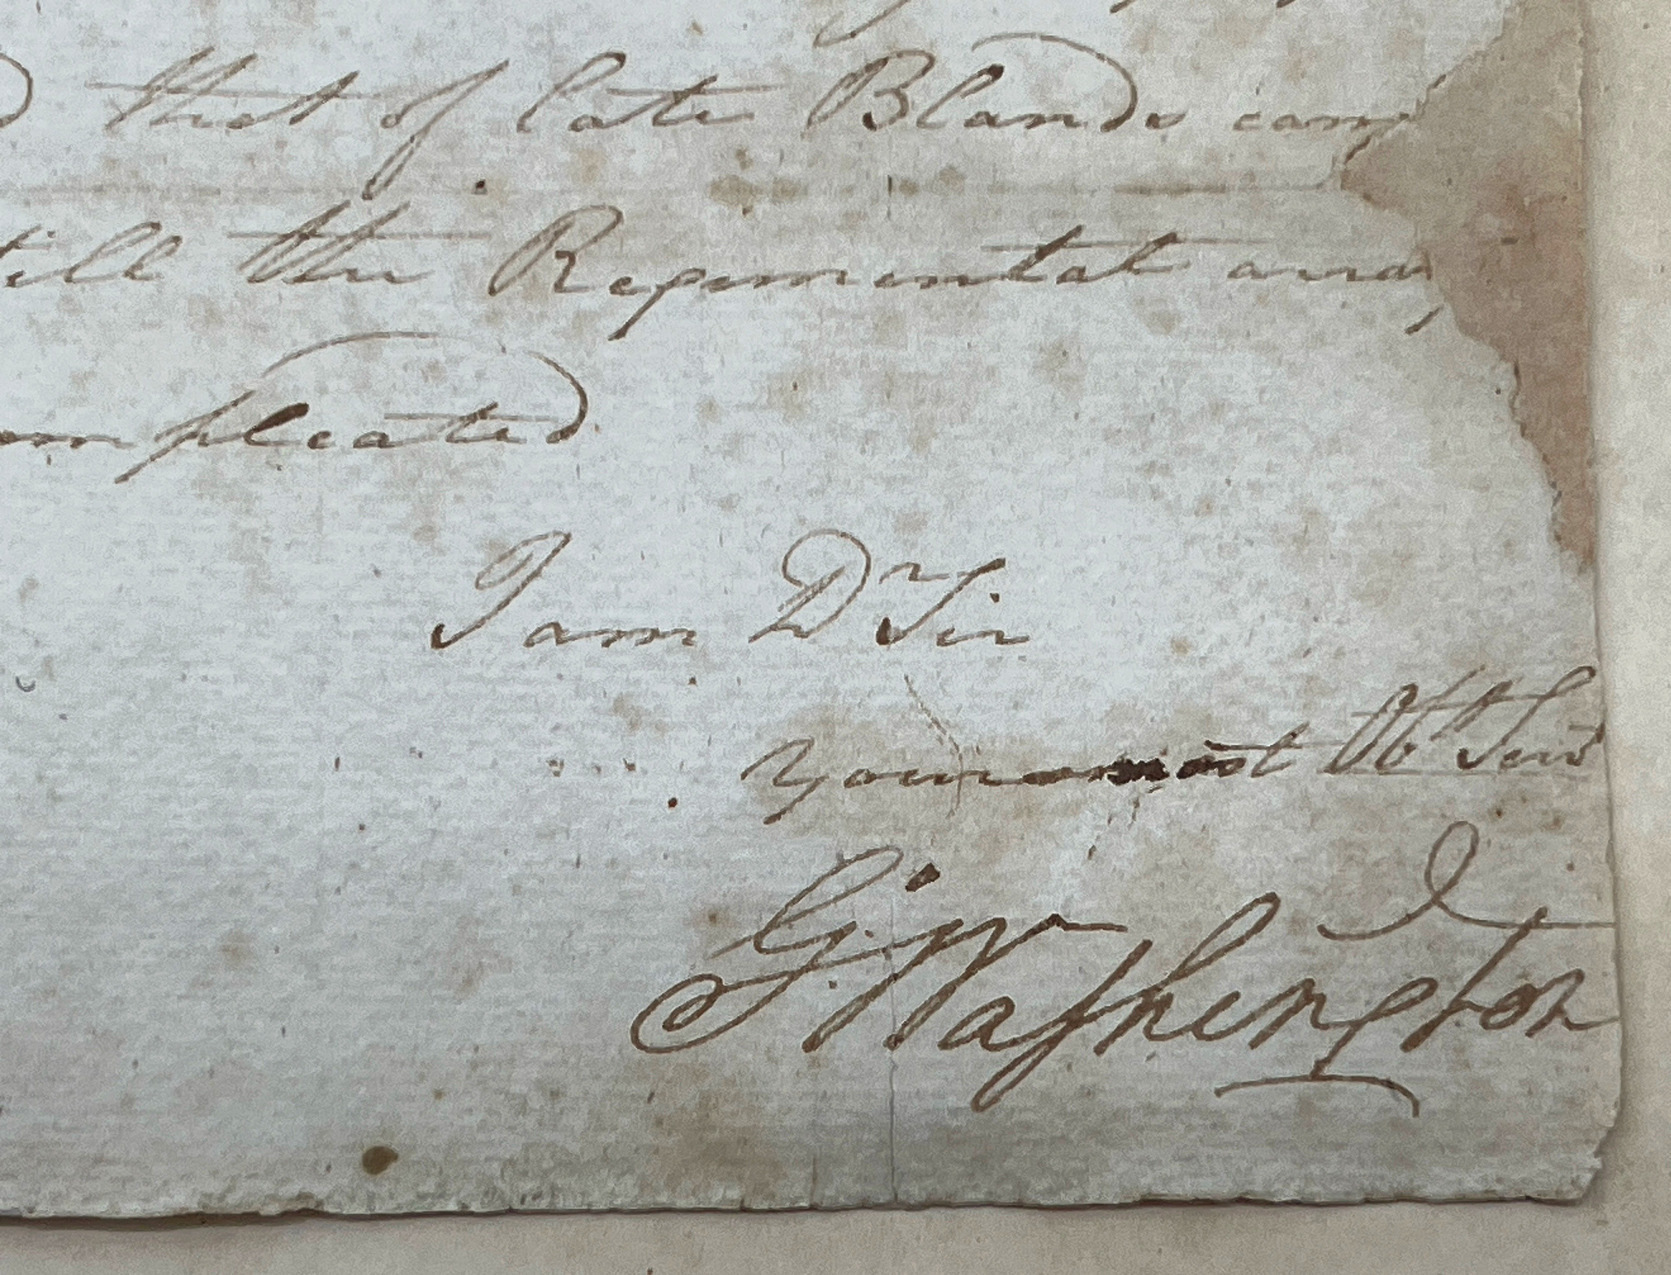 that of late Blands can
till the Regimental arra
ompleated
I am Dr Sir
Your most Obt Servt
G:Washington